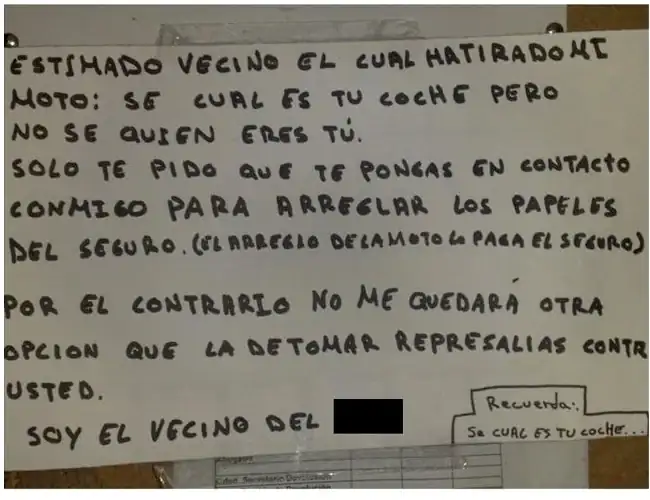 ESTIMADO VECINO EL CUAL HA TIRADO MI
MOTO: SE CUAL ES TU COCHE PERO
NO SE QUIEN ERES TÚ.
SOLO TE PIDO QUE TE PONGAS EN CONTACTO
CONMIGO PARA ARREGLAR LOS PAPELES
DEL SEGURO. (EL ARREGLO DE LA MOTO LO PAGA EL SEGURO)
POR EL CONTRARIO NO ME QUEDARÁ OTRA
OPCION QUE LA DE TOMAR REPRESALIAS CONTR
USTED.
SOY EL VECINO DEL
Recuerda:
Se CUAL ES TU COCHE...
Secretario